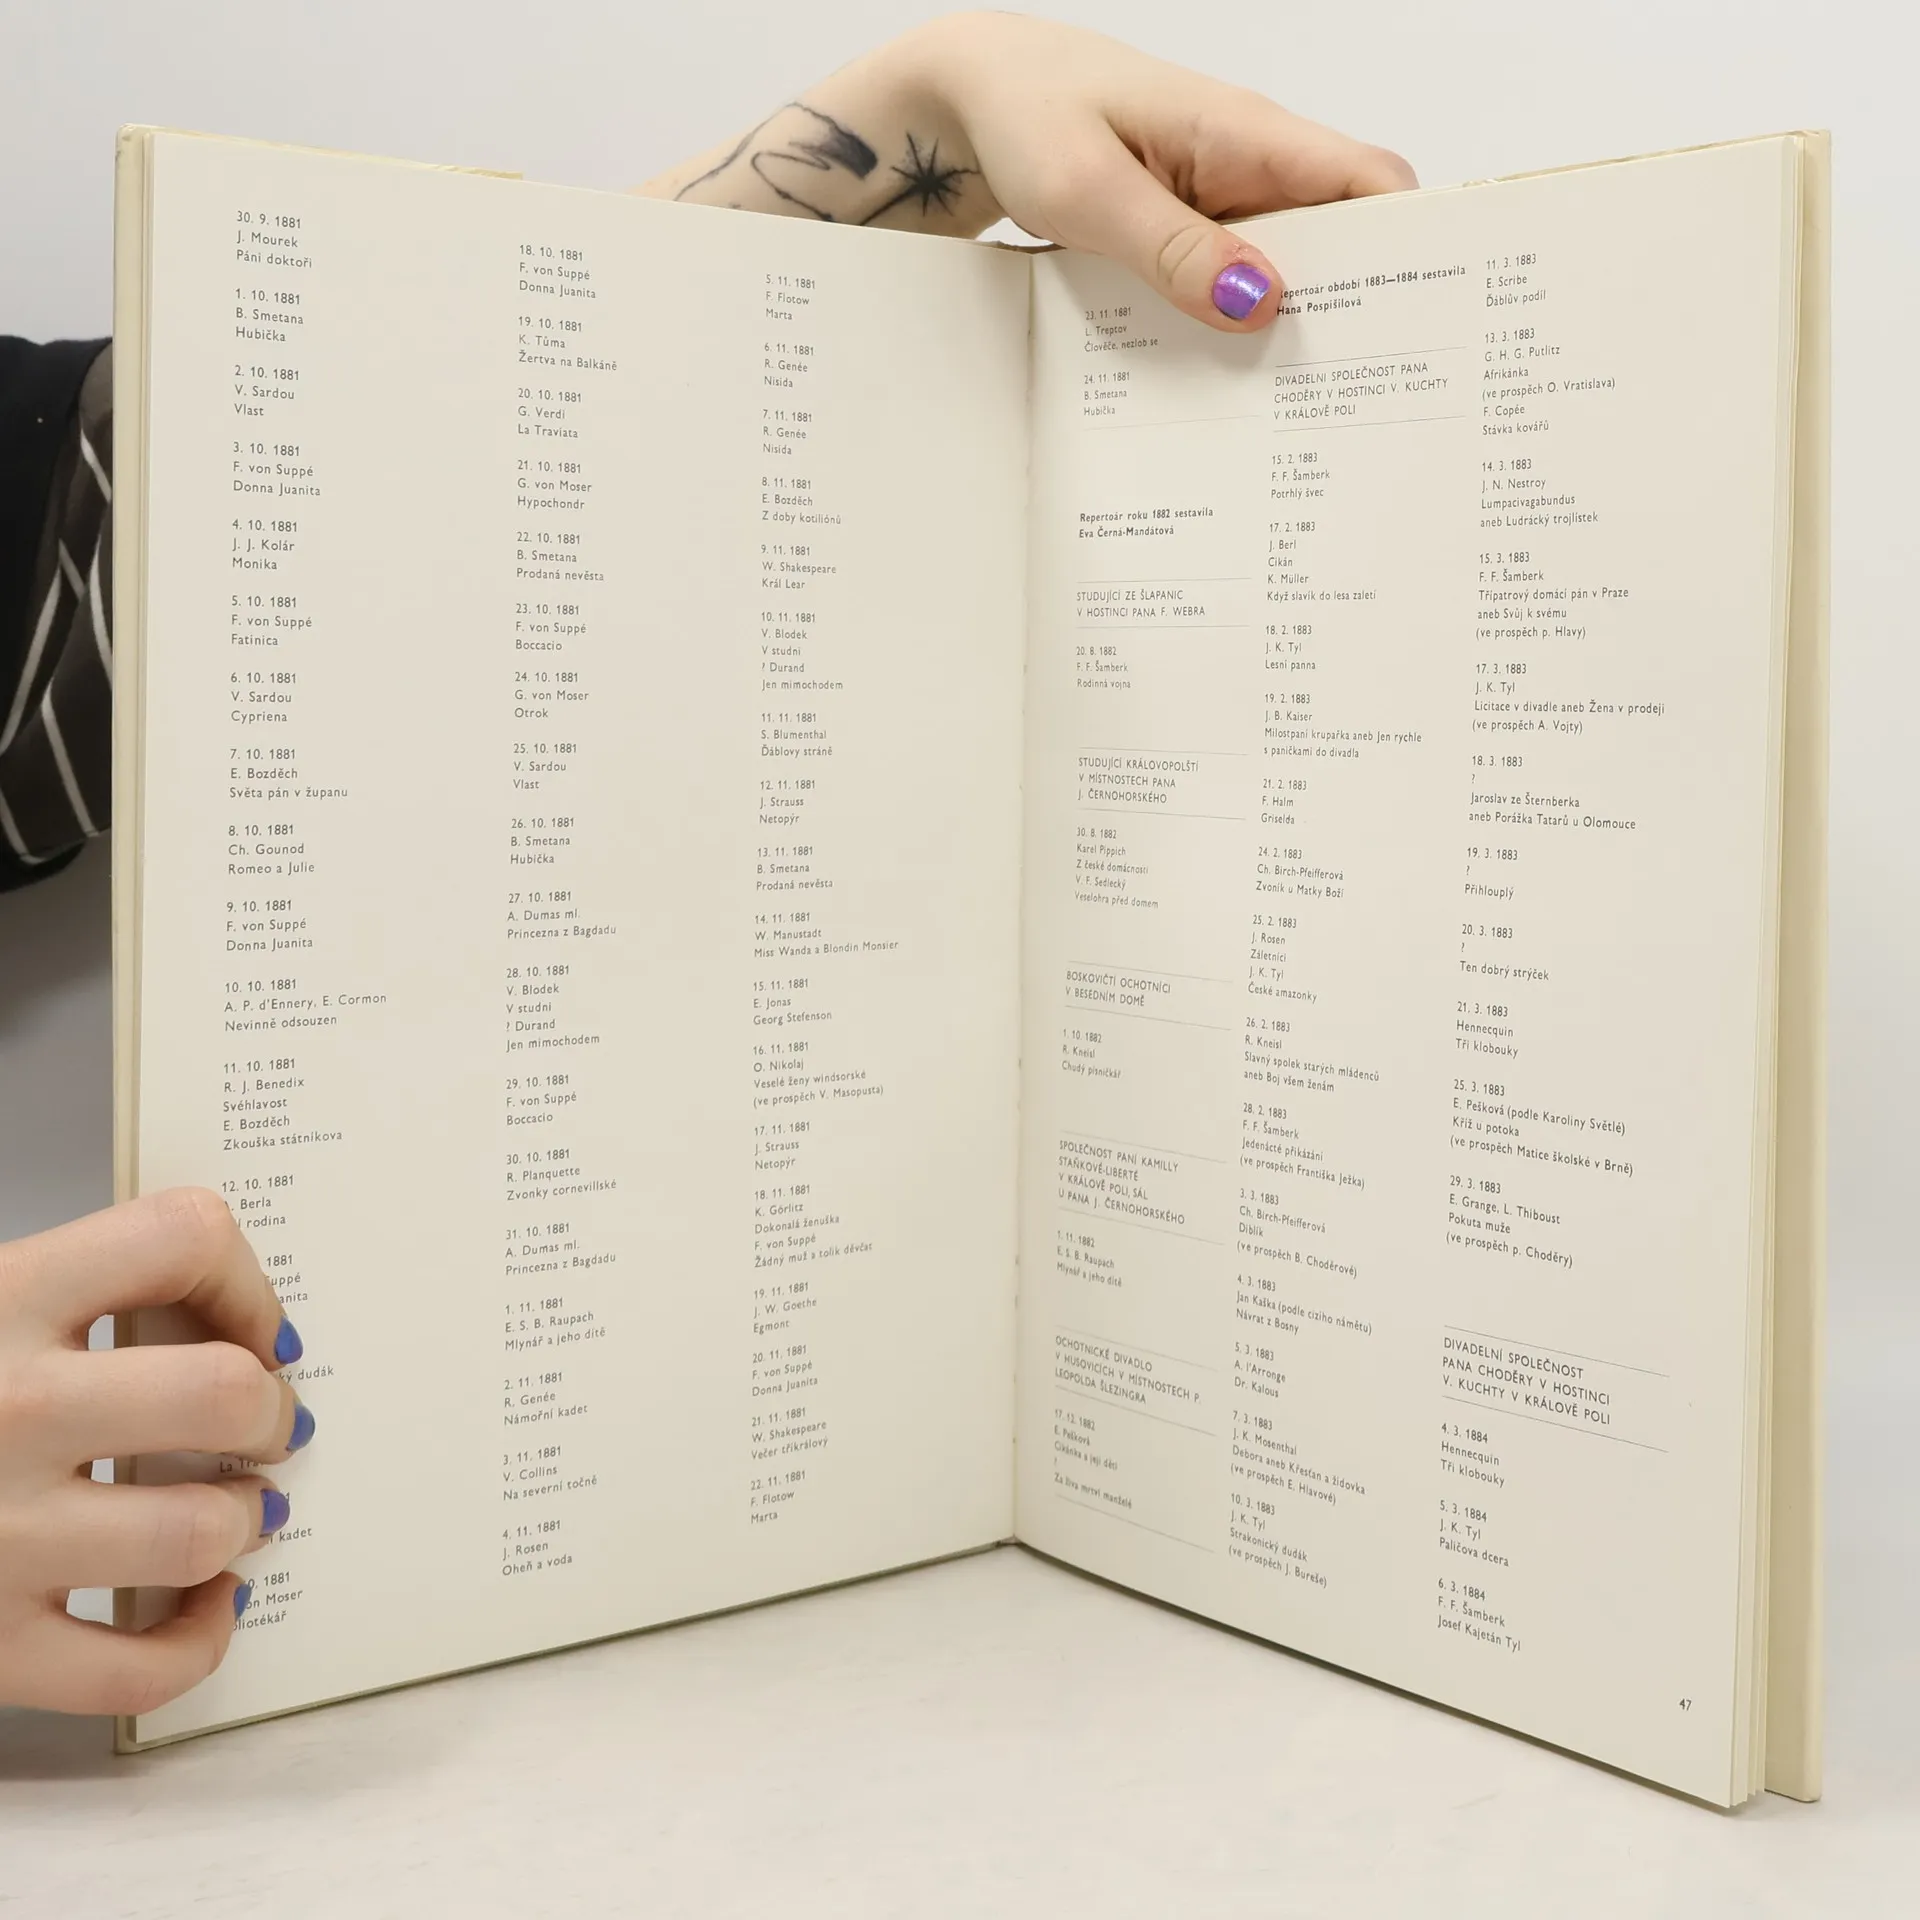 30. 9. 1881
J. Mourek
Páni doktoři
1. 10. 1881
B. Smetana
Hubička
2. 10. 1881
V. Sardou
Vlast
3. 10. 1881
F. von Suppé
Donna Juanita
4. 10. 1881
J. J. Kolár
Monika
5. 10. 1881
F. von Suppé
Fatinica
6. 10. 1881
V. Sardou
Cypriena
7. 10. 1881
E. Bozděch
Světa pán v županu
8. 10. 1881
Ch. Gounod
Romeo a Julie
9. 10. 1881
F. von Suppé
Donna Juanita
10. 10. 1881
A. P. d'Ennery, E. Cormon
Nevinně odsouzen
11. 10. 1881
R. J. Benedix
Svéhlavost
E. Bozděch
Zkouška státníkova
12. 10. 1881
Berla
rodina
1881
dudák
kadet
1881
Moser
18. 10. 1881
F. von Suppé
Donna Juanita
19. 10. 1881
K. Tůma
Žertva na Balkáně
20. 10. 1881
G. Verdi
La Traviata
21. 10. 1881
G. von Moser
Hypochondr
22. 10. 1881
B. Smetana
Prodaná nevěsta
23. 10. 1881
F. von Suppé
Boccacio
24. 10. 1881
G. von Moser
Otrok
25. 10. 1881
V. Sardou
Vlast
26. 10. 1881
B. Smetana
Hubička
27. 10. 1881
A. Dumas ml.
Princezna z Bagdadu
28. 10. 1881
V. Blodek
V studni
? Durand
Jen mimochodem
29. 10. 1881
F. von Suppé
Boccacio
30. 10. 1881
R. Planquette
Zvonky cornevillské
31. 10. 1881
A. Dumas ml.
Princezna z Bagdadu
1. 11. 1881
E. S. B. Raupach
Mlynář a jeho dítě
2. 11. 1881
R. Genée
Námořní kadet
3. 11. 1881
V. Collins
Na severní točně
4. 11. 1881
J. Rosen
Oheň a voda
5. 11. 1881
F. Flotow
Marta
6. 11. 1881
R. Genée
Nisida
7. 11. 1881
R. Genée
Nisida
8. 11. 1881
E. Bozděch
Z doby kotiliónů
9. 11. 1881
W. Shakespeare
Král Lear
10. 11. 1881
V. Blodek
V studni
? Durand
Jen mimochodem
11. 11. 1881
S. Blumenthal
Ďáblovy stráně
12. 11. 1881
J. Strauss
Netopýr
13. 11. 1881
B. Smetana
Prodaná nevěsta
14. 11. 1881
W. Manustadt
Miss Wanda a Blondin Monsier
15. 11. 1881
E. Jonas
Georg Stefenson
16. 11. 1881
O. Nikolaj
Veselé ženy windsorské
(ve prospěch V. Masopusta)
17. 11. 1881
J. Strauss
Netopýr
18. 11. 1881
K. Görlitz
Dokonalá ženuška
F. von Suppé
Žádný muž a tolik děvčat
19. 11. 1881
J. W. Goethe
Egmont
20. 11. 1881
F. von Suppé
Donna Juanita
21. 11. 1881
W. Shakespeare
Večer tříkrálový
22. 11. 1881
F. Flotow
Marta
23. 11. 1881
L. Treptov
Člověče, nezlob se
24. 11. 1881
B. Smetana
Hubička
Repertoár roku 1882 sestavila
Eva Černá-Mandátová
STUDUJÍCÍ ZE ŠLAPANIC
V HOSTINCI PANA F. WEBRA
20. 8. 1882
F. F. Šamberk
Rodinná vojna
STUDUJÍCÍ KRÁLOVOPOLŠTÍ
V MÍSTNOSTECH PANA
J. ČERNOHORSKÉHO
30. 8. 1882
Karel Pippich
Z české domácnosti
V. F. Sedlecký
Veselohra před domem
BOSKOVIČTÍ OCHOTNÍCI
V BESEDNÍM DOMĚ
1. 10. 1882
R. Kneisl
Chudý písničkář
SPOLEČNOST PANÍ KAMILLY
STAŇKOVÉ-LIBERTÉ
V KRÁLOVĚ POLI, SÁL
U PANA J. ČERNOHORSKÉHO
1. 11. 1882
E. S. B. Raupach
Mlynář a jeho dítě
OCHOTNICKÉ DIVADLO
V HUSOVICÍCH V MÍSTNOSTECH P.
LEOPOLDA ŠLEZINGRA
17. 12. 1882
E. Pešková
Cikánka a její děti
?
Za živa mrtví manželé
Repertoár období 1883—1884 sestavila
Hana Pospíšilová
DIVADELNÍ SPOLEČNOST PANA
CHODĚRY V HOSTINCI V. KUCHTY
V KRÁLOVĚ POLI
15. 2. 1883
F. F. Šamberk
Potrhlý švec
17. 2. 1883
J. Berl
Cikán
K. Müller
Když slavík do lesa zaletí
18. 2. 1883
J. K. Tyl
Lesní panna
19. 2. 1883
J. B. Kaiser
Milostpaní krupařka aneb Jen rychle
s paničkami do divadla
21. 2. 1883
F. Halm
Griselda
24. 2. 1883
Ch. Birch-Pfeifferová
Zvoník u Matky Boží
25. 2. 1883
J. Rosen
Záletníci
J. K. Tyl
České amazonky
26. 2. 1883
R. Kneisl
Slavný spolek starých mládenců
aneb Boj všem ženám
28. 2. 1883
F. F. Šamberk
Jedenácté přikázání
(ve prospěch Františka Ježka)
3. 3. 1883
Ch. Birch-Pfeifferová
Diblík
(ve prospěch B. Choděrové)
4. 3. 1883
Jan Kaška (podle cizího námětu)
Návrat z Bosny
5. 3. 1883
A. l'Arronge
Dr. Kalous
7. 3. 1883
J. K. Mosenthal
Debora aneb Křesťan a židovka
(ve prospěch E. Hlavové)
10. 3. 1883
J. K. Tyl
Strakonický dudák
(ve prospěch J. Bureše)
11. 3. 1883
E. Scribe
Ďáblův podíl
13. 3. 1883
G. H. G. Putlitz
Afrikánka
(ve prospěch O. Vratislava)
F. Copée
Stávka kovářů
14. 3. 1883
J. N. Nestroy
Lumpacivagabundus
aneb Ludrácký trojlístek
15. 3. 1883
F. F. Šamberk
Třípatrový domácí pán v Praze
aneb Svůj k svému
(ve prospěch p. Hlavy)
17. 3. 1883
J. K. Tyl
Licitace v divadle aneb Žena v prodeji
(ve prospěch A. Vojty)
18. 3. 1883
?
Jaroslav ze Šternberka
aneb Porážka Tatarů u Olomouce
19. 3. 1883
?
Přihlouplý
20. 3. 1883
?
Ten dobrý strýček
21. 3. 1883
Hennecquin
Tři klobouky
25. 3. 1883
E. Pešková (podle Karoliny Světlé)
Kříž u potoka
(ve prospěch Matice školské v Brně)
29. 3. 1883
E. Grange, L. Thiboust
Pokuta muže
(ve prospěch p. Choděry)
DIVADELNÍ SPOLEČNOST
PANA CHODĚRY V HOSTINCI
V. KUCHTY V KRÁLOVĚ POLI
4. 3. 1884
Hennecquin
Tři klobouky
5. 3. 1884
J. K. Tyl
Paličova dcera
6. 3. 1884
F. F. Šamberk
Josef Kajetán Tyl
47